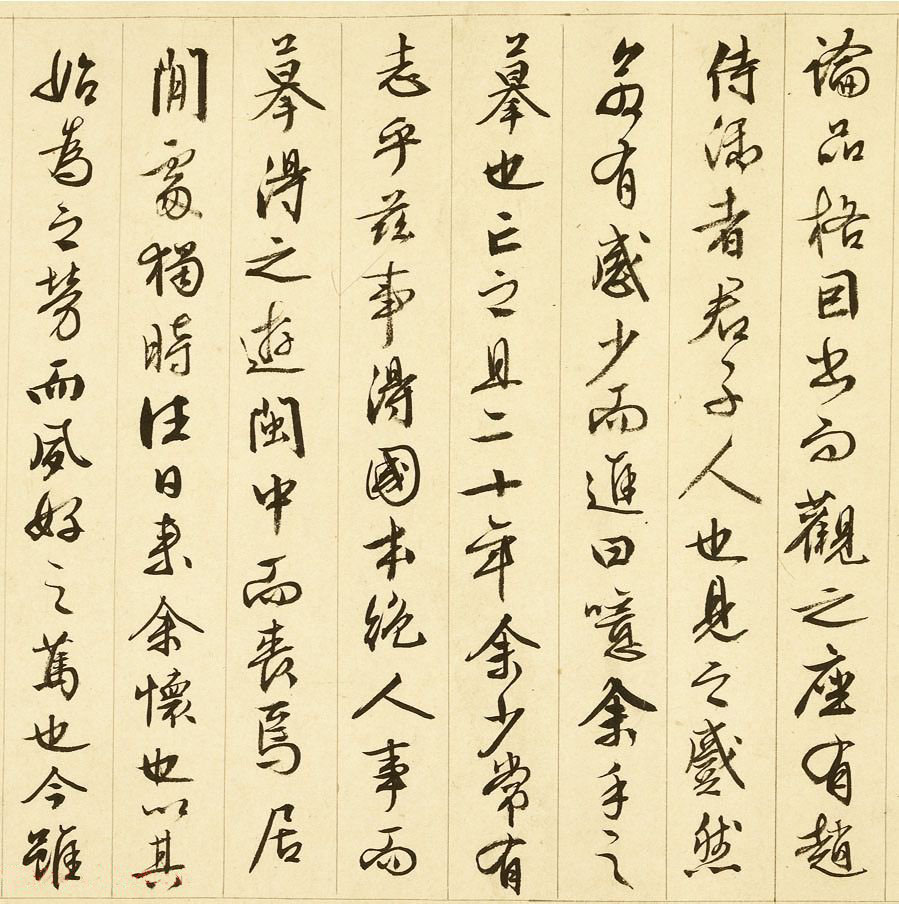 論品格因出而觀之座有趙
侍御者君子人也見之慼然
若有感少而進曰噫余手之
摹也亡之且二十年余少常有
志乎茲事得國本絶人事而
摹得之遊閩中而喪焉居
閒處獨時往日来余懷也以其
始為之勞而夙好之篤也今雖